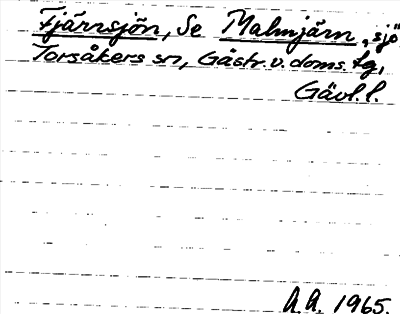 Fjärrsjön, Se Malmjärn, "sjö"
Torsåkers sn, Gästr. v. doms. tg,
Gävl. l.
A.A. 1965.